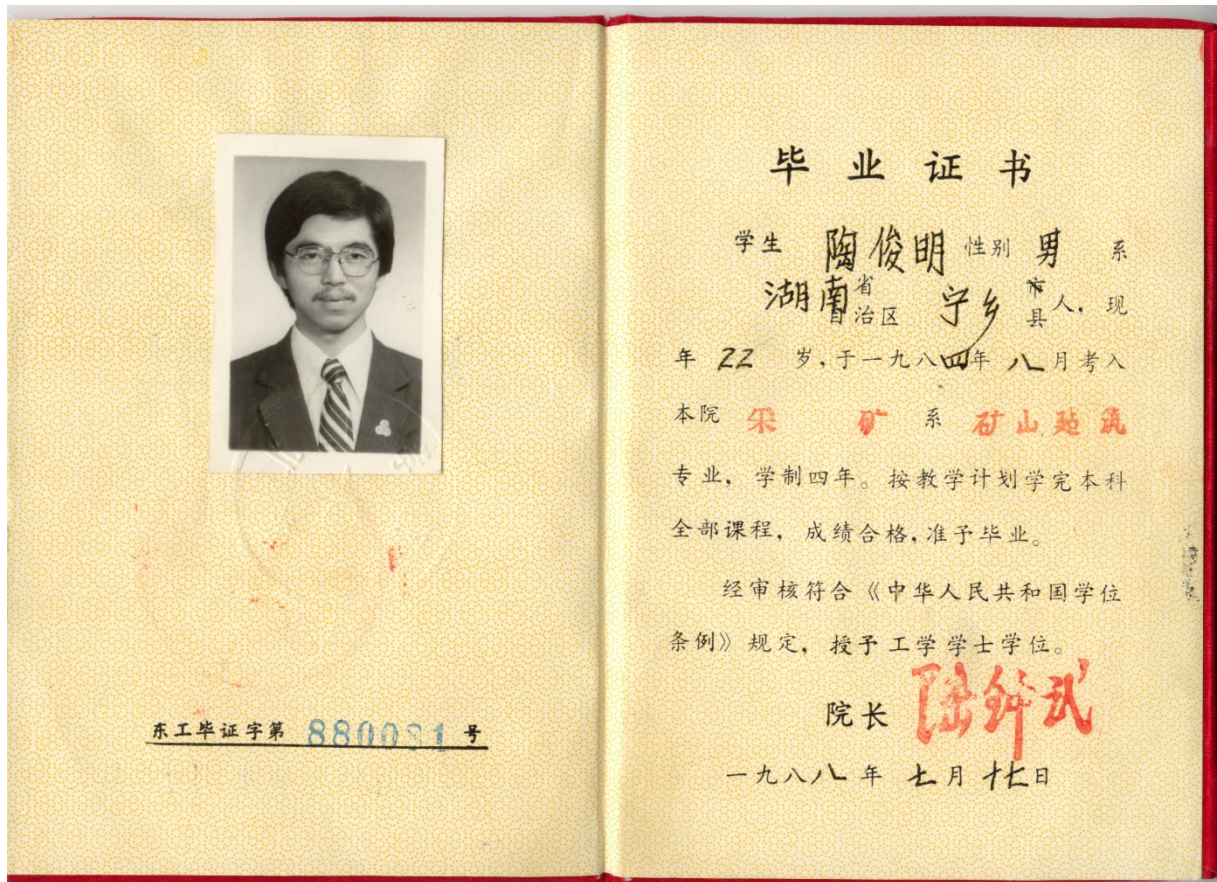 东工毕证字第 880081 号
毕业证书
学生 陶俊明 性别 男 系
湖南省自治区 宁乡市县人,现
年 22 岁,于一九八四年八月考入
本院 采矿 系 矿山建筑
专业,学制四年。按教学计划学完本科
全部课程,成绩合格,准予毕业。
经审核符合《中华人民共和国学位
条例》规定,授予工学学士学位。
院长 陆钟武
一九八八年七月十七日